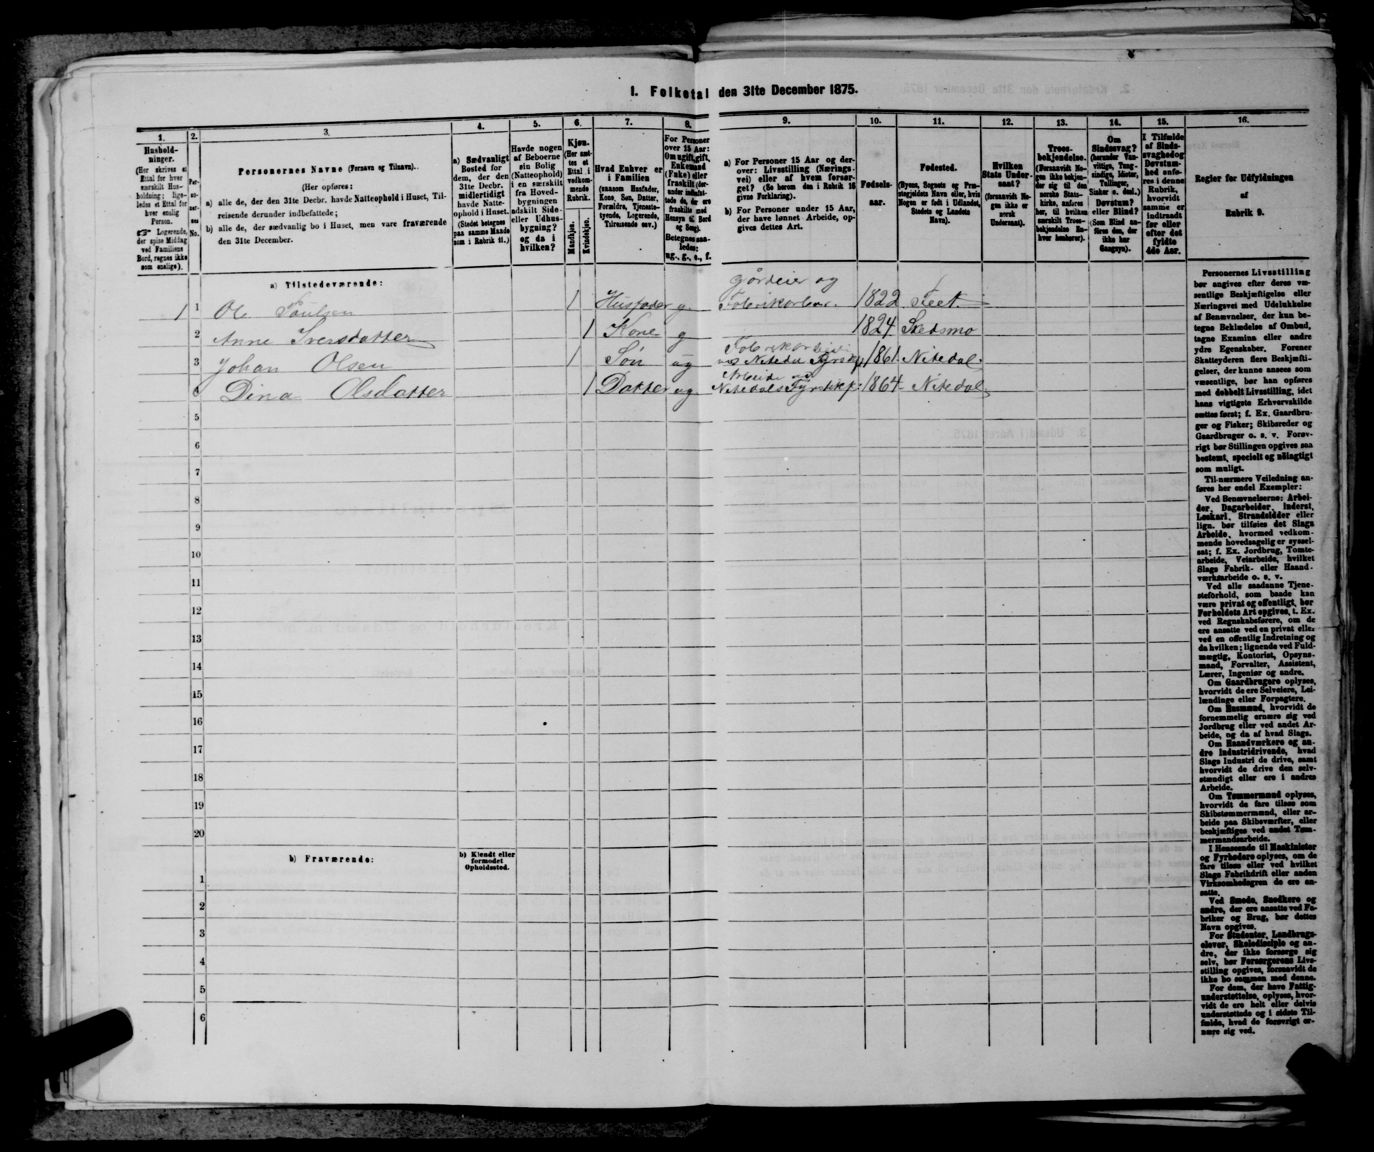 I. Folketal den 31te December 1875.
1.
Hushold-
ninger.
(Her skrives et
Ettal for hver
særskilt Hus-
holdning; lige-
ledes et Ettal for
hver enslig
Person.
☞ Logerende,
der spise Middag
ved Familiens
Bord, regnes ikke
som enslige).
2.
3.
Personernes Navne (Fornavn og Tilnavn).
(Her opføres:
a) alle de, der den 31te Decbr. havde Natteophold i Huset, Til-
reisende derunder indbefattede;
b) alle de, der sædvanlig bo i Huset, men vare fraværende
den 31te December.
4.
a) Sædvanligt
Bosted for
dem, der den
31te Decbr.
midlertidigt
havde Natte-
ophold i Huset.
(Stedet betegnes
paa samme Maade
som i Rubrik 11.)
5.
Havde nogen
af Beboerne
sin Bolig
(Natteophold)
i en særskilt
fra Hoved-
bygningen
adskilt Side-
eller Udhus-
bygning?
og da i
hvilken?
6.
Kjøn.
(Her sæt-
tes et
Ettal i
vedkom-
mende
Rubrik.
Mandkjøn.
Kvindekjøn.
7.
Hvad Enhver er
i Familien
(saasom Husfader,
Kone, Søn, Datter,
Forældre, Tjeneste-
tyende, Logerende,
Tilreisende osv.)
8.
For Personer
over 15 Aar:
Om ugift, gift,
Enkemand
(Enke) eller
fraskilt
ug., g., e., f.
9.
a) For Personer 15 Aar og der-
over: Livsstilling (Nærings-
vei) eller af hvem forsør-
get? (Se herom den i Rubrik 16
givne Forklaring).
b) For Personer under 15 Aar,
der have lønnet Arbeide, op-
gives dettes Art.
10.
Fødsels-
aar.
11.
Fødested.
(Byens, Sognets og Præ-
stegjeldets Navn eller, hvis
Nogen er født i Udlandet,
Stedets og Landets
Navn).
12.
Hvilken
Stats Under-
saat?
(forsaavidt No-
gen ikke er
norsk
Undersaat).
13.
Troes-
bekjendelse.
(Forsaavidt No-
gen ikke bekjen-
der sig til den
norske Stats-
kirke, anføres
her, til hvilken
særskilt Troes-
bekjendelse En-
hver henhører).
14.
Om
Sindssvag?
Døvstum?
eller Blind?
15.
I Tilfælde
af Sinds-
svaghed og
Døvstum-
hed anfø-
res i denne
Rubrik,
hvorvidt
samme er
indtraadt
før eller
efter det
fyldte
4de Aar.
16.
Regler for Udfyldningen
af
Rubrik 9.
a) Tilstedeværende:
1 1 Ole Paulsen 1 Husfader g. Gårdeier og Fabrikarb. 1822
2 Anne Iversdatter 1 Kone g 1824 Skedsmo
3 Johan Olsen 1 Søn ug Fabrikarbeide ved Nitedal 1861 Nitedal.
Dina Olsdatter 1 Datter ug Arbeide ved Nitedals 1864 Nitedal
5
6
7
8
9
10
11
12
13
14
15
16
17
18
19
20
b) Fraværende:
b) Kjendt eller
formodet
Opholdssted.
1
2
3
4
5
6
Personernes Livsstilling
bør angives efter deres væ-
sentlige Beskjæftigelse eller
Næringsvei med Udelukkelse
af Benævnelser, der kun be-
tegne Beklædelse af Ombud,
tagne Examina eller andre
ydre Egenskaber. Forener
Skatteyderen flere Beskjæfti-
gelser, der kunne ansees som
væsentlige, bør han opføres
med dobbelt Livsstilling, idet
hans vigtigste Erhvervskilde
sættes først; f. Ex. Gaardbru-
ger og Fisker; Skibsreder og
Gaardbruger o. s. v. Forøv-
rigt bør Stillingen opgives saa
bestemt, specielt og nøiagtigt
som muligt.
Til nærmere Veiledning an-
føres her endel Exempler:
Ved Benævnelserne: Arbei-
der, Dagarbeider, Inderst,
Løskarl, Strandsidder eller
lign. bør tilføies det Slags
Arbeide, hvormed vedkom-
mende hovedsagelig er syssel-
sat; f. Ex. Jordbrug, Tomte-
arbeide, Veiarbeide, hvilket
Slags Fabrik- eller Haand-
værksarbeide o. s. v.
Ved alle saadanne Tjene-
steforhold, som baade kan
være privat og offentligt, bør
Forholdets Art opgives, f. Ex.
ved Regnskabsførere, om de
ere ansatte ved en privat eller
ved en offentlig Indretning og
da hvilken; lignende ved Fuld-
mægtig, Kontorist, Opsyns-
mand, Forvalter, Assistent,
Lærer, Ingeniør og andre.
Om Gaardbrugere oplyses,
hvorvidt de ere Selveiere, Lei-
lændinge eller Forpagtere.
Om Husmænd, hvorvidt de
fornemmelig ernære sig ved
Jordbrug eller ved andet Ar-
beide, og da af hvad Slags.
Om Haandværkere og an-
dre Industridrivende, hvad
Slags Industri de drive, samt
hvorvidt de drive den selv-
stændigt eller ere i andres
Arbeide.
Om Tømmermænd oplyses,
hvorvidt de fare tilsøs som
Skibstømmermænd, eller ar-
beide paa Skibsværfter, eller
beskjæftiges ved andet Tøm-
mermandsarbeide.
I Henseende til Maskinister
og Fyrbødere oplyses, om de
fare tilsøs eller ved hvilket
Slags Fabrikdrift eller anden
Virksomhedsgren de ere an-
satte.
Ved Smede, Snedkere og
andre, der ere ansatte ved Fa-
briker og Brug, bør dettes
Navn opgives.
For Studenter, Landbrugs-
elever, Skoledisciple og an-
dre, der ikke forsørge sig
selv, bør Forsørgerens Livs-
stilling opgives, forsaavidt de
ikke bo sammen med denne.
For dem, der have Fattig-
understøttelse, oplyses, hvor-
vidt de ere helt eller delvis
understøttede og i sidste Til-
fælde, hvad de forøvrigt er-
nære sig ved.